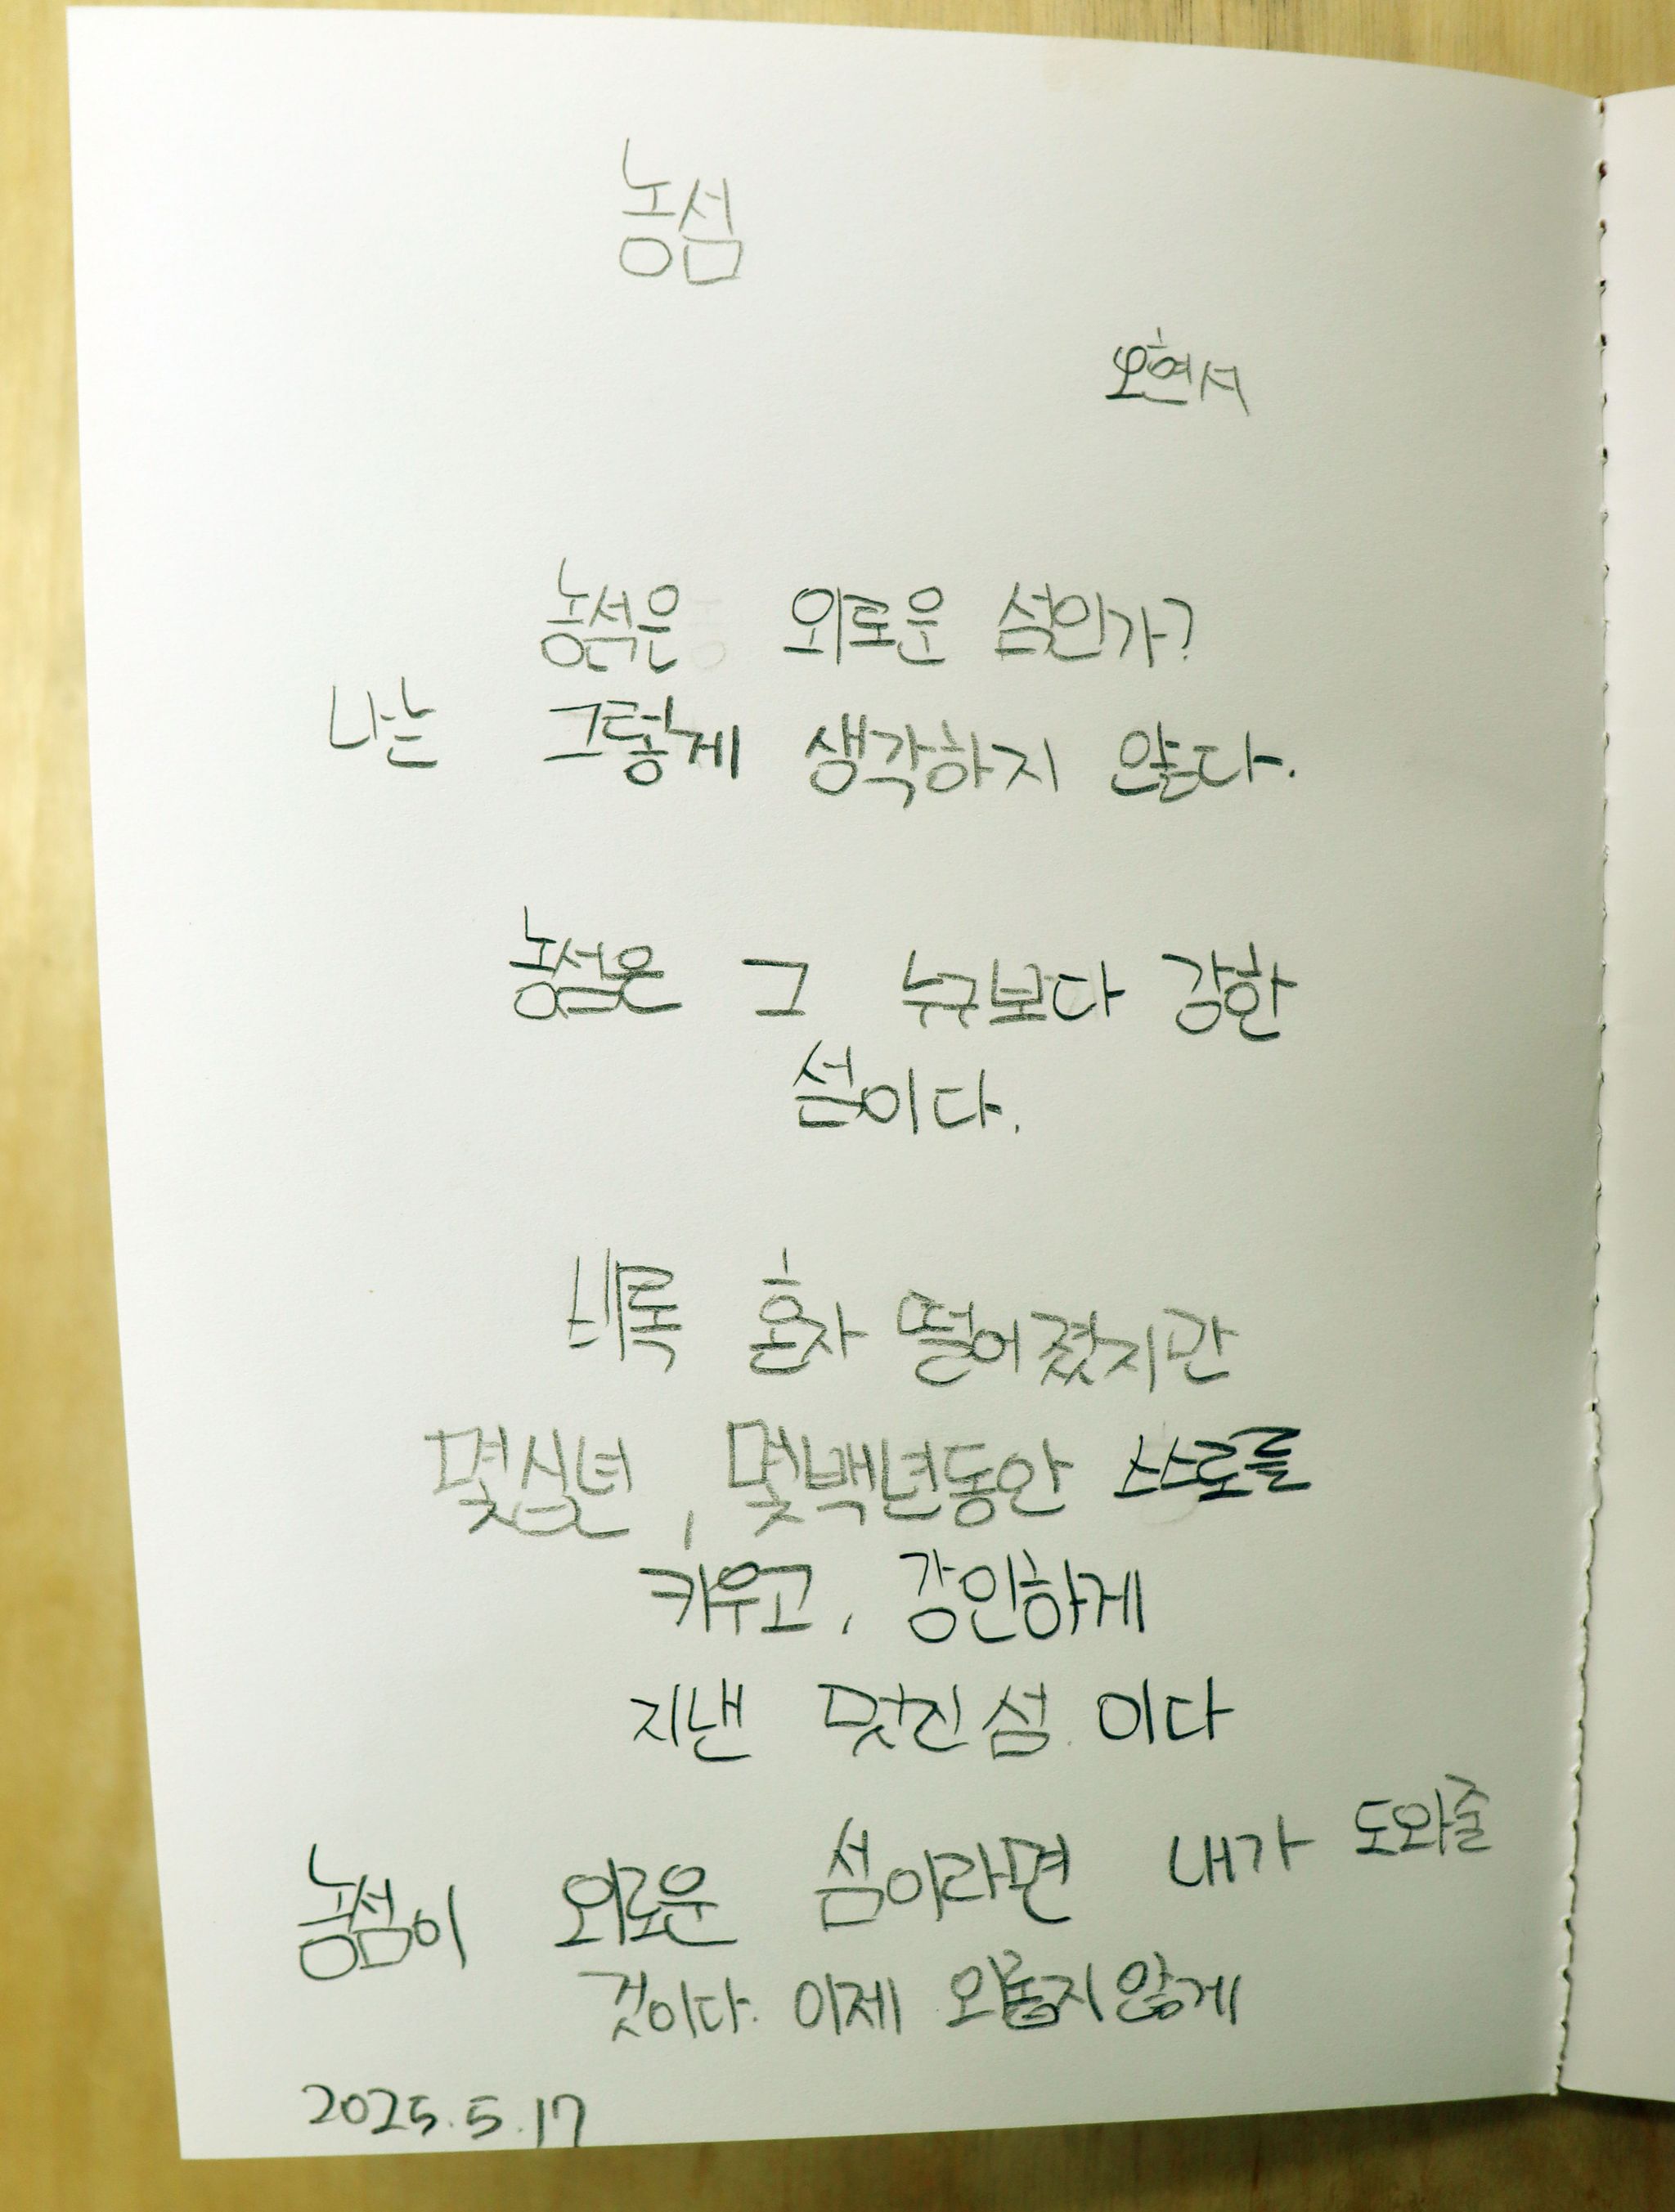 농섬
오현서
농섬은 외로운 섬인가?
나는 그렇게 생각하지 않는다.
농섬은 그 누구보다 강한
섬이다.
비록 혼자 떨어졌지만
몇십년, 몇백년동안 스스로를
키우고, 강인하게
지낸 멋진 섬 이다
농섬이 외로운 섬이라면 내가 도와줄
것이다. 이제 외롭지않게
2025.5.17